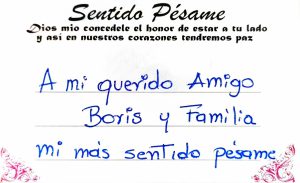 Sentido Pésame
Dios mio concedele el honor de estar a tu lado
y así en nuestros corazones tendremos paz
A mi querido Amigo
Boris y Familia
mi más sentido pésame